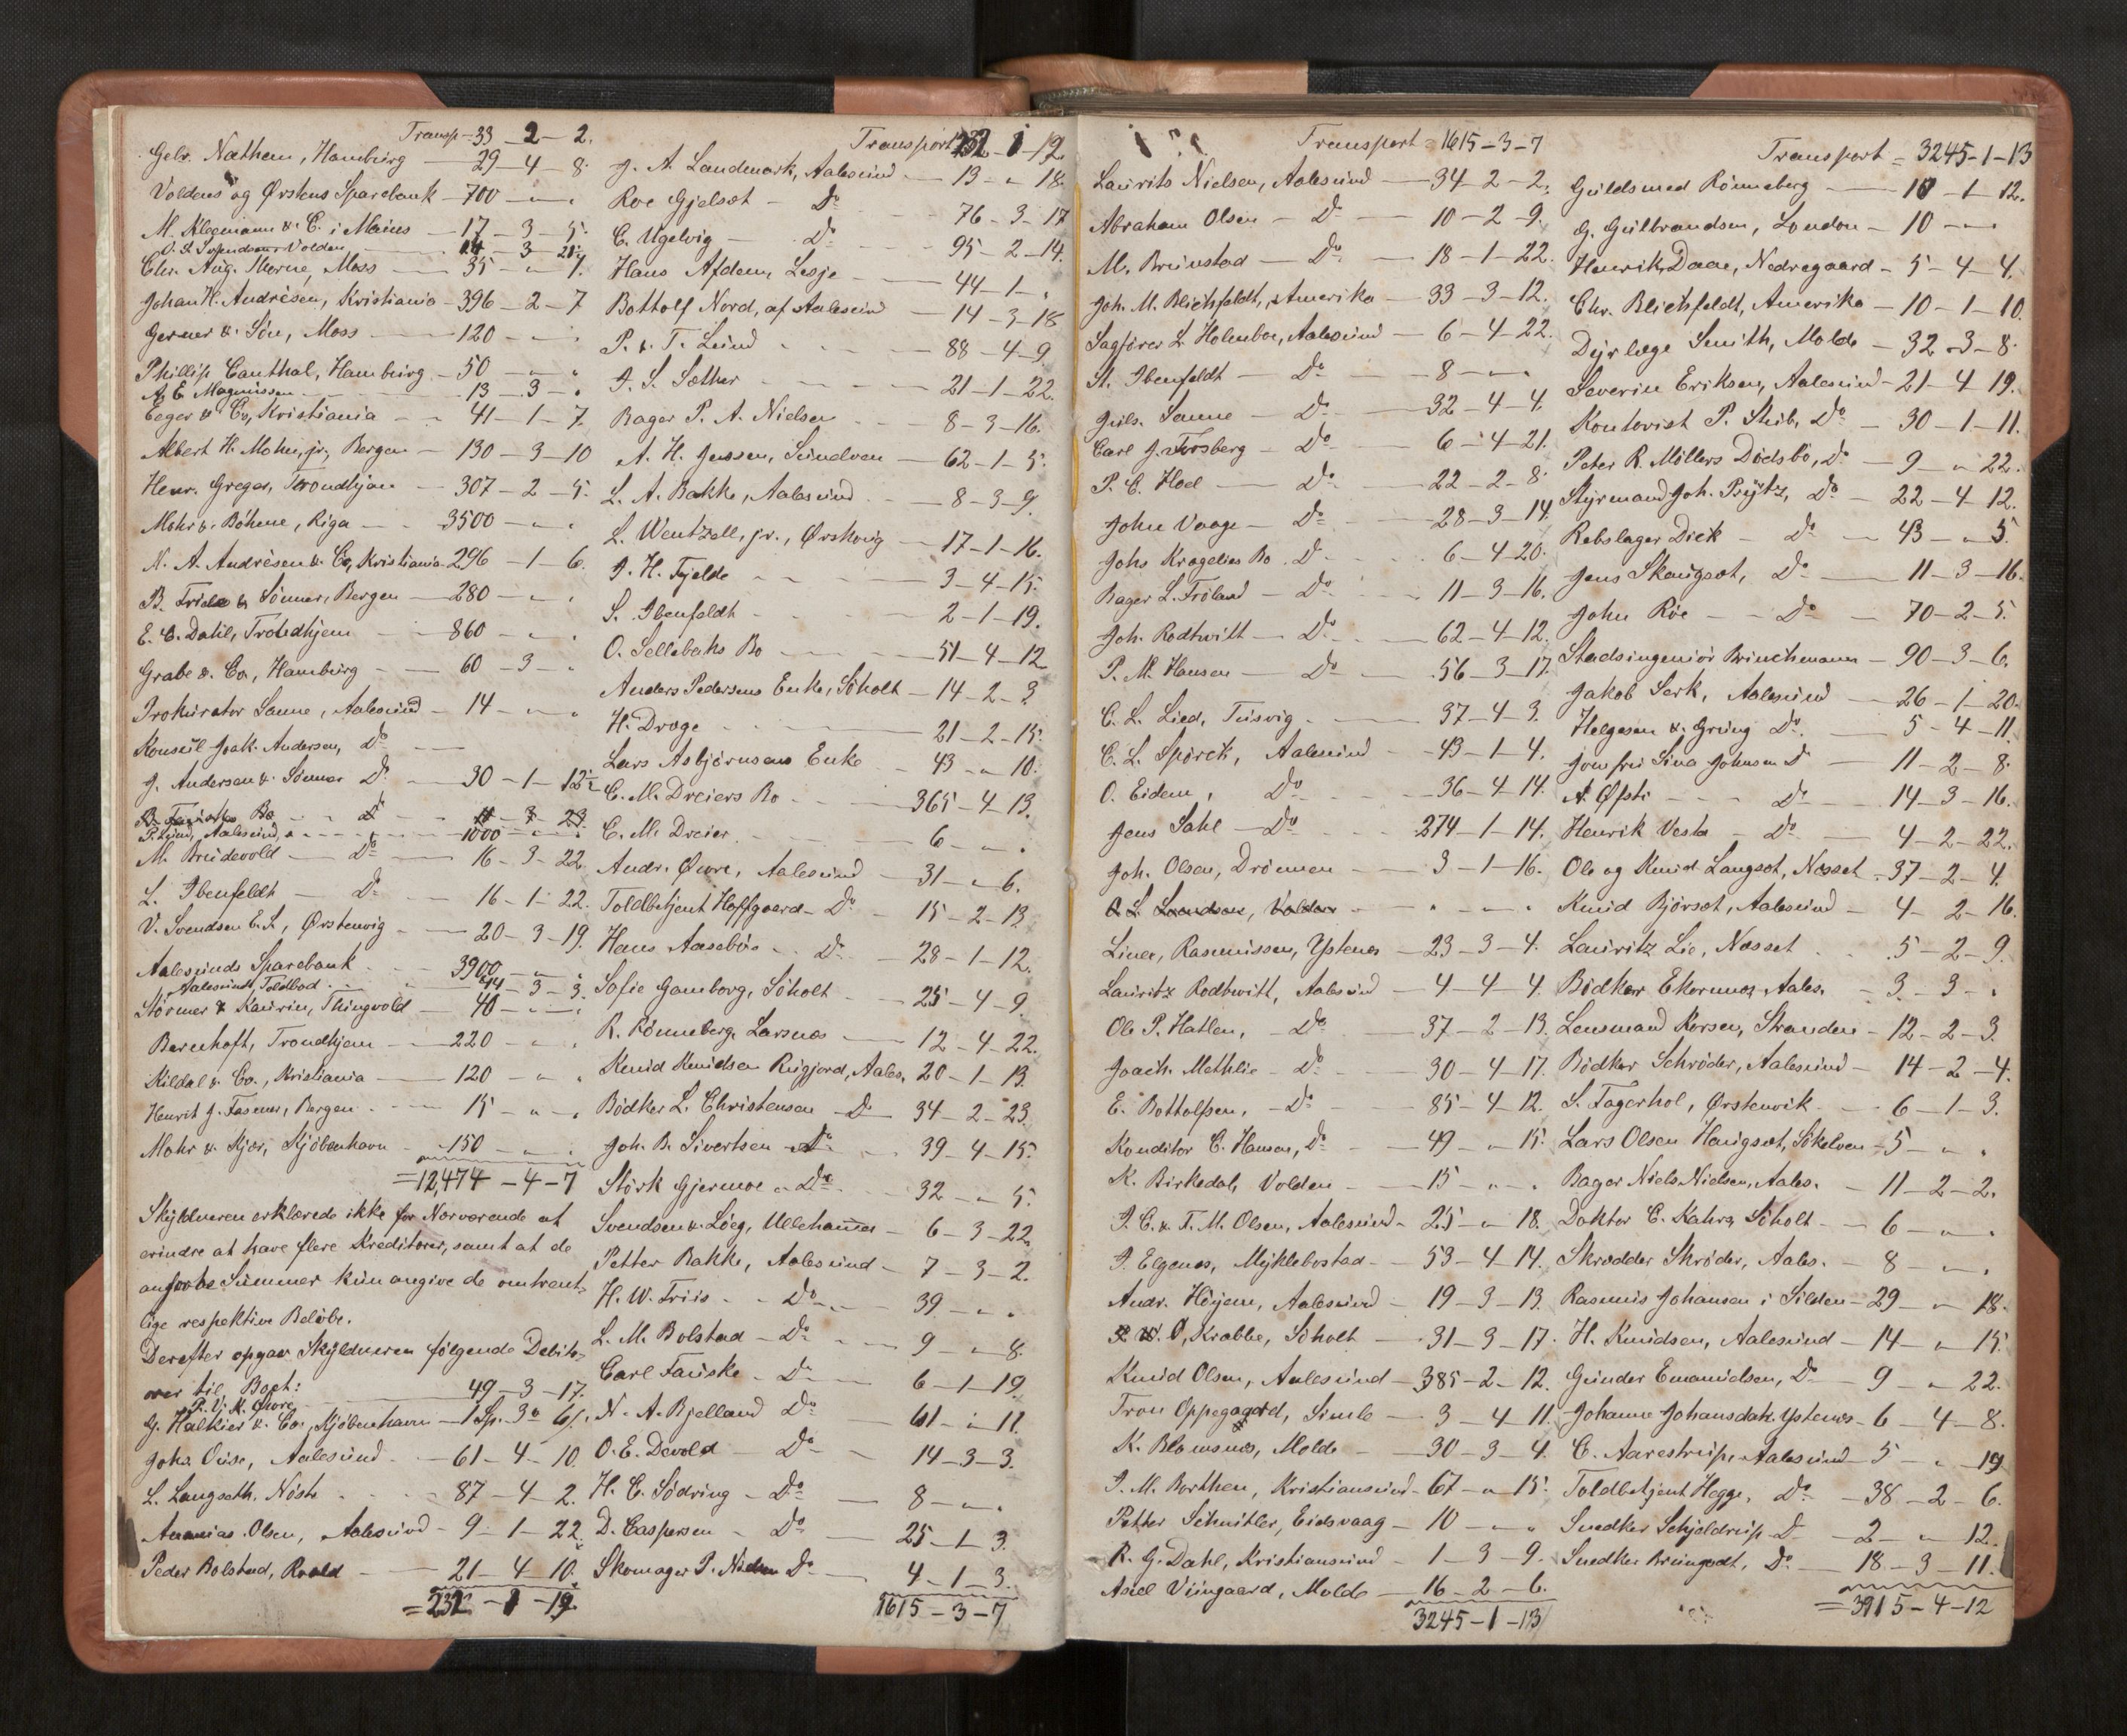 Transp - 33 - 2 - 2.
Gebr. Nathem, Hamburg - 29 - 4 - 8.
Voldens og Ørstens Sparebank - 700 - " - "
M. Klegmann & C. i Mainz - 17 - 3 - 5.
O. L. Svendsen Volden - 14 - 3 - 21.
Chr. Aug. Thorne, Moss - 35 - " - 1.
Johan H. Andrèsen, Kristiania - 396 - 2 - 7
Gerner & Søn, Moss - 120 - " - "
Phillip Canthal, Hamburg - 50 - " - "
A. E. Magnussen - 13 - 3 - "
Eeger & Co, Kristiania - 41 - 1 - 7.
Albert H. Mohn, jr., Bergen - 130 - 3 - 10
Henr. Greger, Trondhjem - 307 - 2 - 5.
Mohr & Böhme, Riga - 3500 - " - "
N. A. Andrèsen & Co, Kristiania - 296 - 1 - 6.
B. Friele & Sønner, Bergen - 280 - " - "
E. C. Dahl, Trondhjem - 860 - " - "
Grabe & Co, Hamburg - 60 - 3 - "
Prokurator Sanne, Aalesund - 14 - " - "
Konsul Joak. Andersen, Do -
J. Andersen & Sønner Do - 30 - 1 - 12½
P. Lund, Aalesund, - 1000 - " - "
M. Breidevold - Do - 16 - 3 - 22
L. Ibenfeldt - Do - 16 - 1 - 22.
V. Svendsen E. S., Ørstenvig - 20 - 3 - 19.
Aalesunds Sparebank - 3900 - " - "
Aalesunds Toldbod - 44 - 3 - 3.
Størmer & Kaurin, Thingvold - 40 - " - "
Bernhoft, Trondhjem - 220 - " - "
Kildal & Co., Kristiania - 120 - " - "
Henrik J. Fasmer, Bergen - 15 - " - "
Mohr & Kjær, Kjøbenhavn - 150 - " - "
= 12,474 - 4 - 7
Skyldneren erklærede ikke for Nærværende at
erindre at have flere Kreditorer, samt at de
anførte Summer kun angive de omtrent-
lige respektive Beløbe.
Derefter opgav Skyldneren følgende Debito-
rer til Boet:
P. U. K. Øwre - 49 - 3 - 17.
G. Halkier & Co., Kjøbenhavn - 1 Sp. 3 o 6 s.
Johs. Ouse, Aalesund - 61 - 4 - 10.
L. Langseth, Nøste - 87 - 4 - 2.
Ananias Olsen, Aalesund - 9 - 1 - 22.
Peder Bolstad, Roald - 21 - 4 - 10.
= 232 - 1 - 19.
Transport 232 - 1 - 19.
J. A. Landmark, Aalesund - 13 - " - 18.
Roe Gjelsæt - Do - 76 - 3 - 17
C. Ugelvig - Do - 95 - 2 - 14.
Hans Afdem, Lesje - 44 - 1 - "
Bottolf Nord, af Aalesund - 14 - 3 - 18
P. & T. Lund - 88 - 4 - 9
J. S. Sæther - 21 - 1 - 22.
Bager P. A. Nielsen - 8 - 3 - 16.
A. H. Jensen, Sundven - 62 - 1 - 5.
L. A. Bakke, Aalesund - 8 - 3 - 9.
L. Wentzell, jr., Ørskovig - 17 - 1 - 16.
J. H. Fjelde - 3 - 4 - 15.
S. Ibenfeldt - 2 - 1 - 19.
O. Sellebaks Bo - 51 - 4 - 12
Anders Pedersens Enke, Söholt - 14 - 2 - 3
H. Drage - 21 - 2 - 15.
Lars Asbjørnsens Enke - 43 - " - 10.
C. M. Dreiers Bo - 365 - 4 - 13.
C. M. Dreier - 6 - " - "
Andr. Øwre, Aalesund - 31 - " - 6.
Toldbetjent Hoffgaard - Do - 15 - 2 - 13.
Hans Aasebøe - Do - 28 - 1 - 12.
Sofie Gamborg, Söholt - 25 - 4 - 9.
R. Rønneberg, Larsnæs - 12 - 4 - 22.
Knud Knudsen Rugjord, Aales. 20 - 1 - 13.
Bødker L. Christensen - Do - 34 - 2 - 23.
Joh. B. Sivertsen - Do - 39 - 4 - 15.
Størk Gjermoe - Do - 32 - " - 5.
Svendsen & Løeg, Ullehammer - 6 - 3 - 22.
Petter Bakke, Aalesund - 7 - 3 - 2.
H. W. Friis - Do - 39 - " - "
L. M. Bolstad - Do - 9 - " - 8.
Carl Fauske - Do - 6 - 1 - 19.
N. A. Bjelland Do - 61 - " - 11.
O. E. Devold - Do - 14 - 3 - 3.
H. E. Södring - Do - 8 - " - "
D. Caspersen - Do - 25 - 1 - 3.
Skomager P. Nielsen Do - 4 - 1 - 3.
1615 - 3 - 7
Transport = 1615 - 3 - 7
Laurits Nielsen, Aalesund - 34 - 2 - 2.
Abraham Olsen - Do - 10 - 2 - 9.
M. Breivstad - Do - 18 - 1 - 22.
Joh. M. Blichfeldt, Amerika - 33 - 3 - 12.
Sagfører L. Holmboe, Aalesund - 6 - 4 - 22.
A. Ibenfeldt - Do - 8 - " - "
Juls. Sanne - Do - 32 - 4 - 4.
Carl J. Forsberg - Do - 6 - 4 - 21.
P. C. Hoel - Do - 22 - 2 - 8.
John Vaage - Do - 28 - 3 - 14
Johs Kragelies Bo Do - 6 - 4 - 20.
Bager L. Frøland - Do - 11 - 3 - 16.
Joh. Rodtwitt - Do - 62 - 4 - 12.
P. M. Hansen - Do - 56 - 3 - 17.
C. L. Lied, Tusvig - 37 - 4 - 3.
C. L. Spørck, Aalesund - 43 - 1 - 4.
O. Eidem, Do - 36 - 4 - 14.
Jens Sahl - Do - 274 - 1 - 14.
Joh. Olsen, Drønnen - 3 - 1 - 16.
O. L. Svendsen, Volden - " - " - "
Liner, Rasmussen, Ystenes - 23 - 3 - 4.
Lauritz Rodtwitt, Aalesund - 4 - 4 - 4.
Ole P. Hatlen, - Do - 37 - 2 - 13.
Joach. Methlie - Do - 30 - 4 - 17.
E. Bottolfsen, - Do - 85 - 4 - 12.
Konditor C. Hansen, Do - 49 - " - 15.
K. Birkedal, Volden - 15 - " - "
J. C. & T. M. Olsen, Aalesund - 25 - " - 18.
J. Elgenes, Myklebostad - 53 - 4 - 14.
Andr. Höijem, Aalesund - 19 - 3 - 13.
O. Krabbe, Söholt - 31 - 3 - 17.
Knud Olsen, Aalesund - 385 - 2 - 12.
Tron Oppegaard, Simle - 3 - 4 - 11.
K. Blomsnes, Molde - 30 - 3 - 4.
J. M. Borthen, Kristiansund - 67 - " - 15.
Petter Schnitler, Eidsvaag - 10 - " - "
R. G. Dahl, Kristiansund - 1 - 3 - 9.
Axel Viingaard, Molde - 16 - 2 - 6.
3245 - 1 - 13
Transport = 3245 - 1 - 13
Guldsmed Rönneberg - 10 - 1 - 12.
G. Gulbrandsen, London - 10 - " - "
Henrik Daae, Nedregaard - 5 - 4 - 4.
Chr. Blichfeldt, Amerika - 10 - 1 - 10.
Dyrlæge Smith, Molde - 32 - 3 - 8.
Severin Eriksen, Aalesund - 21 - 4 - 19.
Kontorist P. Stub, Do - 30 - 1 - 11.
Peter R. Möllers Dödsbo, Do - 9 - " - 22.
Styrmand Joh. Prytz, Do - 22 - 4 - 12.
Rebslager Dick - Do - 43 - " - 5.
Jens Skaugsæt, Do - 11 - 3 - 16.
John Röe - Do - 70 - 2 - 5.
Stadsingeniör Brinchmann - 90 - 3 - 6.
Jakob Serk, Aalesund - 26 - 1 - 20.
Helgesen & Gruug Do - 5 - 4 - 11.
Jomfru Sina Johnsen Do - 11 - 2 - 8.
A. Øfsti - Do - 14 - 3 - 16.
Henrik Vestre - Do - 4 - 2 - 22.
Ole og Knud Langsæt, Næsset - 37 - 2 - 4.
Knud Bjørsæt, Aalesund - 4 - 2 - 16.
Lauritz Lie, Næsset - 5 - 2 - 9.
Bödker Ekornnes, Aales. - 3 - 3 - "
Lensmand Korsen, Stranden - 12 - 2 - 3.
Bödker Schröder, Aalesund - 14 - 2 - 4.
S. Fagerhol, Ørstenvik - 6 - 1 - 3.
Lars Olsen Haugset, Sökelven - 5 - " - "
Bager Niels Nielsen, Aales. - 11 - 2 - 2.
Doktor C. Kahrs, Söholt - 6 - " - "
Skrædder Skröder, Aales. - 8 - " - "
Rasmus Johansen i Silden - 29 - " - 18.
H. Knudsen, Aalesund - 14 - " - 15.
Gunder Emanuelsen, Do - 9 - " - 22.
Johanne Johansdatr. Ystenes - 6 - 4 - 8.
C. Aarestrup, Aalesund - 5 - " - 19
Toldbetjent Hegge, Do - 38 - 2 - 6.
Snedker Schjeldrup Do - 2 - " - 12.
Snedker Brungodt, Do - 18 - 3 - 11.
= 3915 - 4 - 12